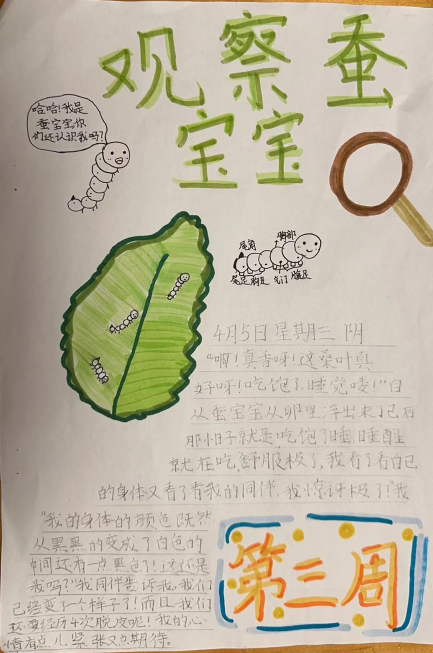 观察蚕
宝宝
哈哈!我是
蚕宝宝,你
们还认识我吗?
尾角 胸部
尾足 胸足 气门 腹足
4月5日星期三 阴
“啊!真香呀!这桑叶真
好呀!吃饱了睡觉喽!”自
从蚕宝宝从卵里孚出来了已后
那小日子就是吃饱了睡,睡醒
就在吃,舒服极了,我看了看自己
的身体又看了看我的同伴,我惊讶极了!“我
“我的身体的颜色既然
从黑黑的变成了白色的
中间还有一点黑色了!这还是
我吗?”我同伴告诉我:我们
已经变了一个样子了!而且我们
还要经历4次脱皮呢!我的心
情有点儿紧张又期待。
第三周